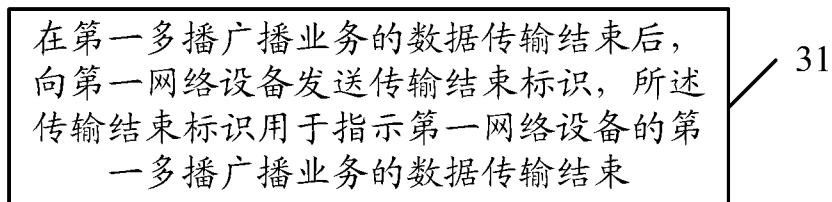 在第一多播广播业务的数据传输结束后，
向第一网络设备发送传输结束标识，所述
传输结束标识用于指示第一网络设备的第
一多播广播业务的数据传输结束
31